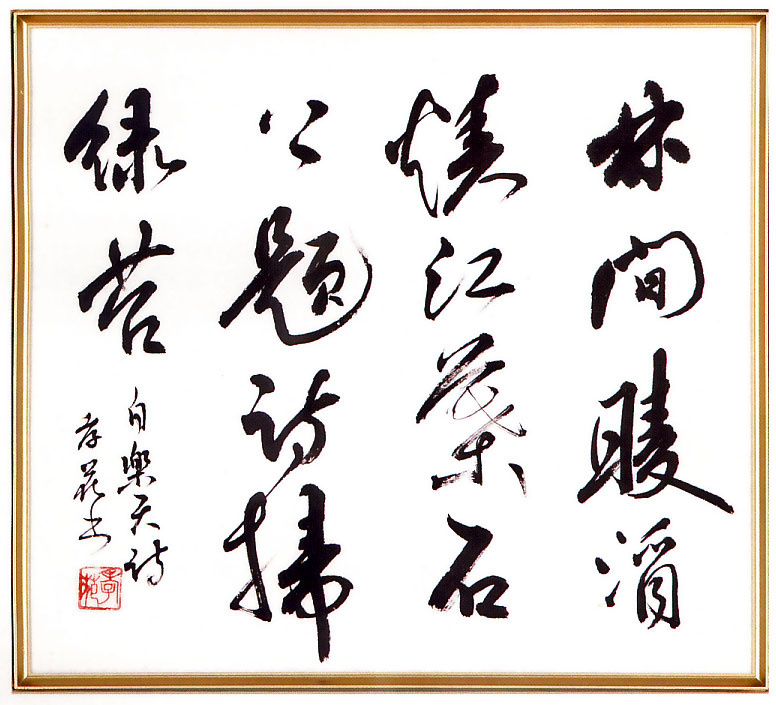 林間暖酒
燒紅葉石
上題詩掃
緑苔
白樂天詩
書